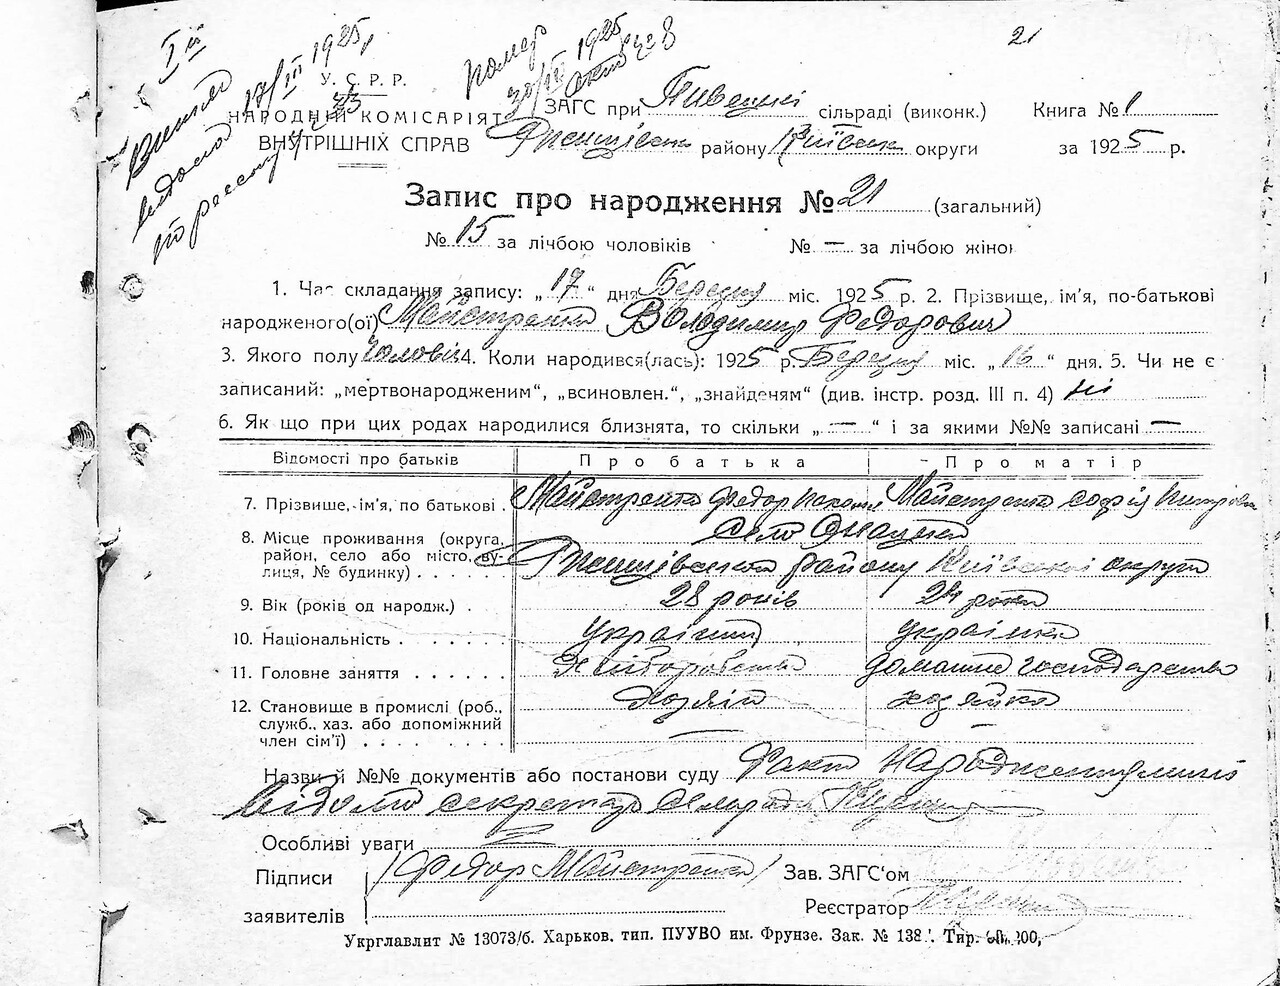 21
І ш
Витяг
видано
17/III 1925 р.
по реєстру
Помер
30/III 1925
акт № 8
У. С. Р. Р.
НАРОДНІЙ КОМІСАРІЯТ
ВНУТРІШНІХ СПРАВ
ЗАГС при сільраді (виконк.) Книга № 1
району Київськ округи за 1925 р.
Запис про народження № 21 (загальний)
№ 15 за лічбою чоловіків № — за лічбою жіно
1. Час складання запису: „ 17 “ дня Березня міс. 1925 р. 2. Прізвище, ім'я, по-батькові
народженого(ої) Майстренко Володимир Федорович
3. Якого полу чоловіч 4. Коли народився(лась): 1925 р. Березня міс. „ 16 “ дня. 5. Чи не є
записаний: „мертвонародженим“, „всиновлен.“, „знайденям“ (див. інстр. розд. III п. 4) ні
6. Як що при цих родах народилися близнята, то скільки „ — “ і за якими №№ записані —
Відомості про батьків Про батька Про матір
7. Прізвище, ім'я, по батькові . Майстренко Федор Майстренко Софія
8. Місце проживання (округа,
район, село або місто, ву-
лиця, № будинку) . . . . .
Село
району Київської округи
9. Вік (років од народж.) . 28 років 24 роки
10. Національність . . . . . українець українка
11. Головне заняття . . . . . . Хліборобство домашнє господарство
12. Становище в промислі (роб.,
служб., хаз. або допоміжний
член сім'ї) . . . . . . . .
Хозяїн хозяйка
Назви й №№ документів або постанови суду Факт народження
відомо секретар Сельради
Особливі уваги
Підписи
заявителів
Федор Майстренко
Зав. ЗАГС'ом
Реєстратор
Укрглавлит № 13073/б. Харьков. тип. ПУУВО им. Фрунзе. Зак. № 138 . Тир.